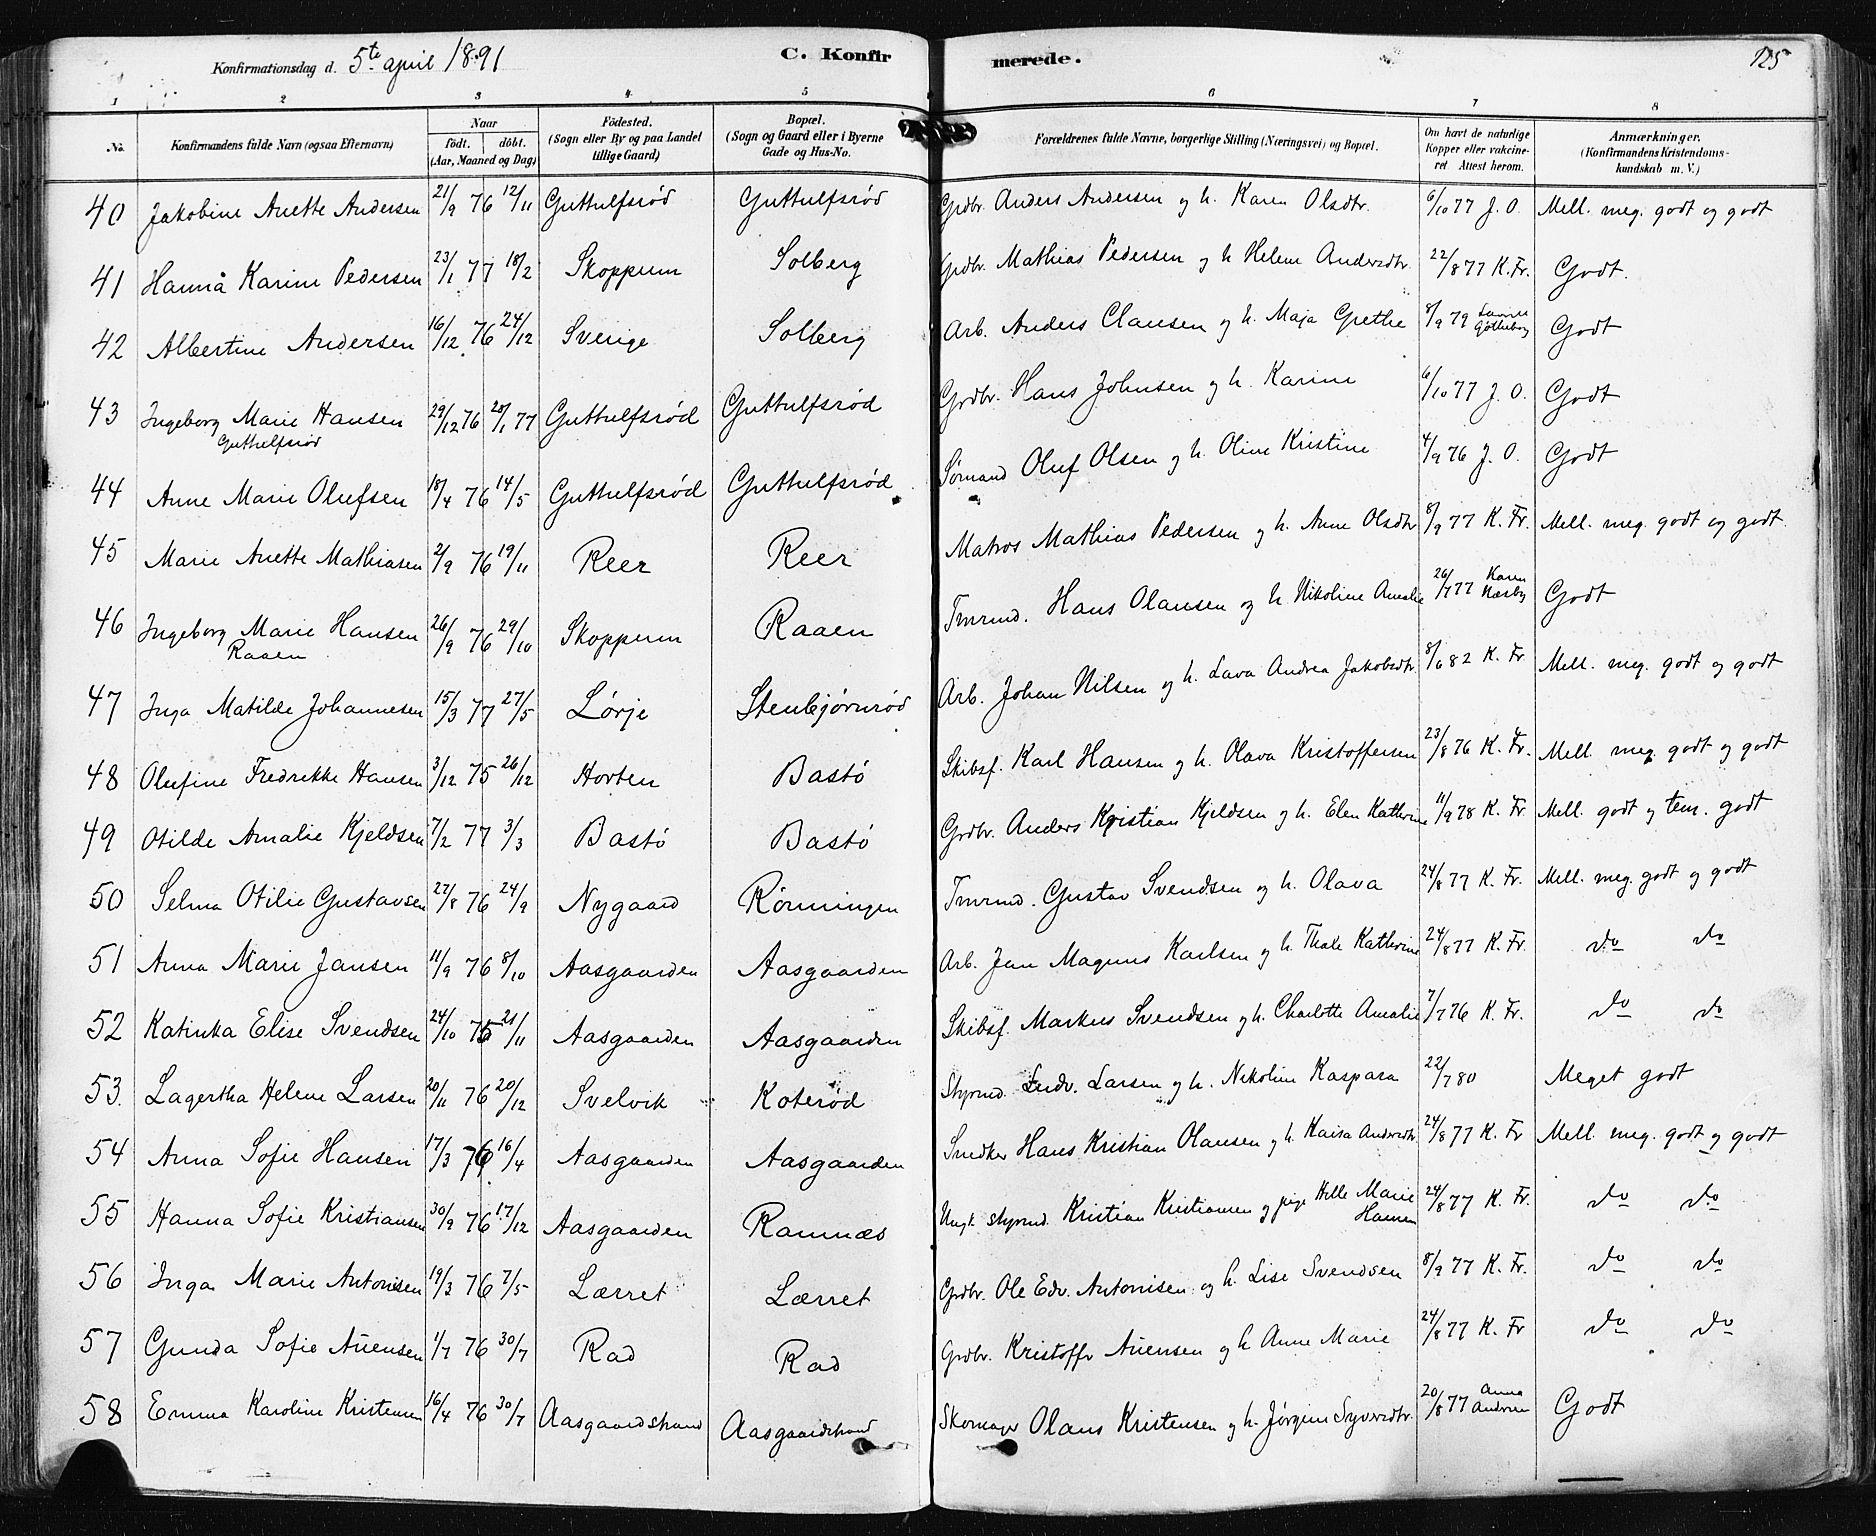 Konfirmationsdag d. 5te april 1891 C. Konfirmerede. 125
1 2 3 4 5 6 7 8
No. Konfirmandens fulde Navn (ogsaa Efternavn) Naar født. døbt. (Aar, Maaned og Dag) Fødested. (Sogn eller By og paa Landet tillige Gaard) Bopæl. (Sogn og Gaard eller i Byerne Gade og Hus-No. Forældrenes fulde Navne, borgerlige Stilling (Næringsvei) og Bopæl. Om havt de naturlige Kopper eller vakcineret Attest herom. Anmærkninger. (Konfirmandens Kristendomskundskab m. V.)
40 Jakobine Anette Andersen 21/9 76 12/11 Guttulfsrød Guttulfsrød Grdbr. Anders Andersen og h. Karen Olsdtr. 6/10 77 J. O. Mell. meg. godt og godt
41 Hanna Karine Pedersen 23/1 77 18/2 Skoppum Solberg Grdbr. Mathias Pedersen og h Helene Andersdtr. 22/8 77 K. Fr. Godt.
42 Albertine Andersen 16/12 76 24/12 Sverige Solberg Arb. Anders Clausen og h. Maja Grethe 8/9 79 Gøtheborg Godt
43 Ingeborg Marie Hansen 29/12 76 28/1 77 Guttulfsrød Guttulfsrød Grdbr. Hans Johnsen og h. Karine 6/10 77 J. O. Godt
Guttulfsrød
44 Anne Marie Olufsen 18/4 76 14/5 Guttulfsrød Guttulfsrød Sømand Oluf Olsen og h. Oline Kristine 4/9 76 J. O. Godt
45 Marie Anette Mathiasen 2/9 76 19/11 Reer Reer Matros Mathias Pedersen og h. Anne Olsdtr 8/9 77 K. Fr. Mell. meg. godt og godt.
46 Ingeborg Marie Hansen 26/9 76 29/10 Skoppum Raaen Tmrmd. Hans Olausen og h. Nikoline Amalie 26/7 77 Karen Godt
Raaen
47 Inga Matilde Johannesen 15/3 77 27/5 Lørje Stenbjørnrød Arb. Johan Nilsen og h. Lava Andrea Jakobsdtr. 8/6 82 K. Fr. Mell. meg. godt og godt
48 Olufine Fredrikke Hansen 3/12 75 26/12 Horten Bastø Skibsf. Karl Hansen og h. Olava Kristoffersen 23/8 76 K. Fr. Mell. meg. godt og godt
49 Otilde Amalie Kjeldsen 7/2 77 3/3 Bastø Bastø Grdbr. Anders Kristian Kjeldsen og h. Elen Kathrine 11/9 78 K. Fr. Mell. godt og tem. godt
50 Selma Otilie Gustavsen 27/8 76 24/9 Nygaard Rønningen Tmrmd. Gustav Svendsen og h. Olava 24/8 77 K. Fr. Mell. meg. godt og godt
51 Anna Marie Jansen 11/9 76 8/10 Aasgaarden Aasgaarden Arb. Jan Magnus Karlsen og h. Thale Kathrine 24/8 77 K. Fr. do do
52 Katinka Elise Svendsen 24/10 75 21/11 Aasgaarden Aasgaarden Skibsf. Markus Svendsen og h. Charlotte Amalie 7/7 76 K. Fr. do do
53. Lagertha Helene Larsen 20/11 76 20/12 Svelvik Koterød Styrmd. Ludv. Larsen og h. Nikoline Kaspara 22/7 80 Meget godt
54 Anna Sofie Hansen 17/3 76 16/4 Aasgaarden Aasgaarden Snedker Hans Kristian Olausen og h. Kaisa Andersdtr. 24/8 77 K. Fr Mell. meg. godt og godt
55 Hanna Sofie Kristiansen 30/9 76 17/12 Aasgaarden Ramnæs Ungk. styrmd. Kristian Kristiansen og pige Helle Marie Hansen 24/8 77 K. Fr. do do
56 Inga Marie Antonisen 19/3 76 7/5 Lærret Lærret Grdbr. Ole Edv. Antonisen og h. Lise Svendsen 8/9 77 K. Fr. do do
57 Gunda Sofie Auensen 1/7 76 30/7 Rad Rad Grdbr. Kristoffr Auensen og h Anne Marie 24/8 77 K. Fr do do
58 Emma Karoline Kristensen 16/4 76 30/7 Aasgaardstrand Aasgaardstrand Skomager Olaus Kristensen og h. Jørgine Syversdtr. 20/8 77 Anna Andersen Godt